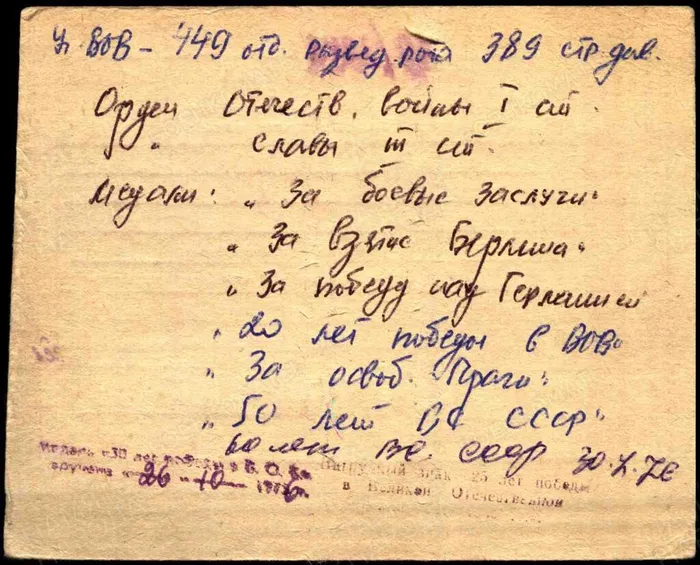 Уч. ВОВ – 449 отд. развед рота 389 стр. див.
Орден Отечеств. войны I ст.
" славы III ст.
Медали: "За боевые заслуги"
"За взятие Берлина"
"За победу над Германией
"20 лет победы в ВОВ"
"За освоб. Праги"
"50 лет ВС СССР"
60 лет ВС СССР 30.X.7
Медаль «30 лет победы в В. О. В»
вручена «26» 10 197 г.
Нагрудный знак 25 лет победы
в Великой Отечественной